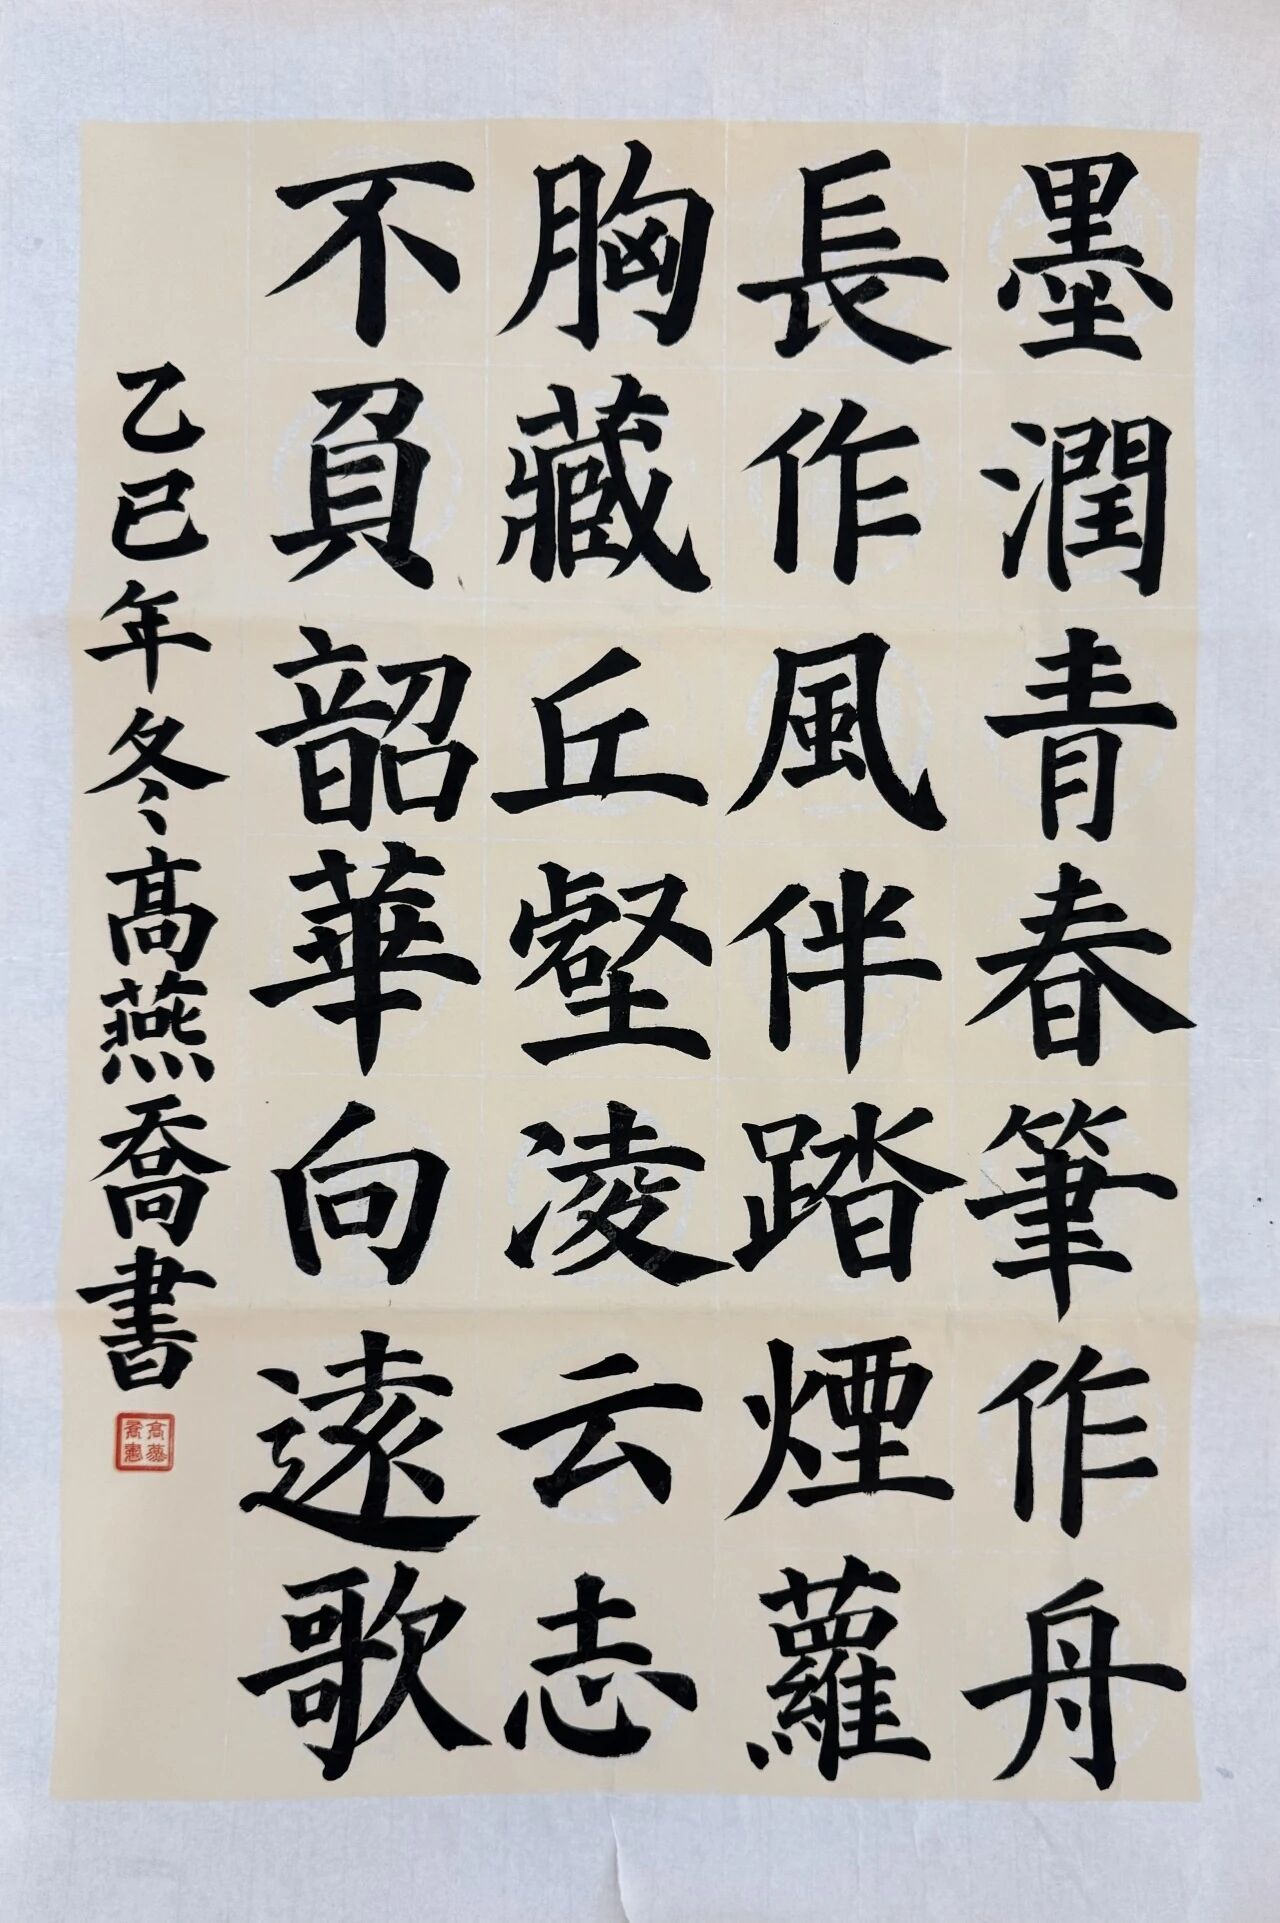 墨潤青春筆作舟
長作風伴踏煙蘿
胸藏丘壑凌云志
不負韶華向遠歌
乙巳年冬高燕喬書